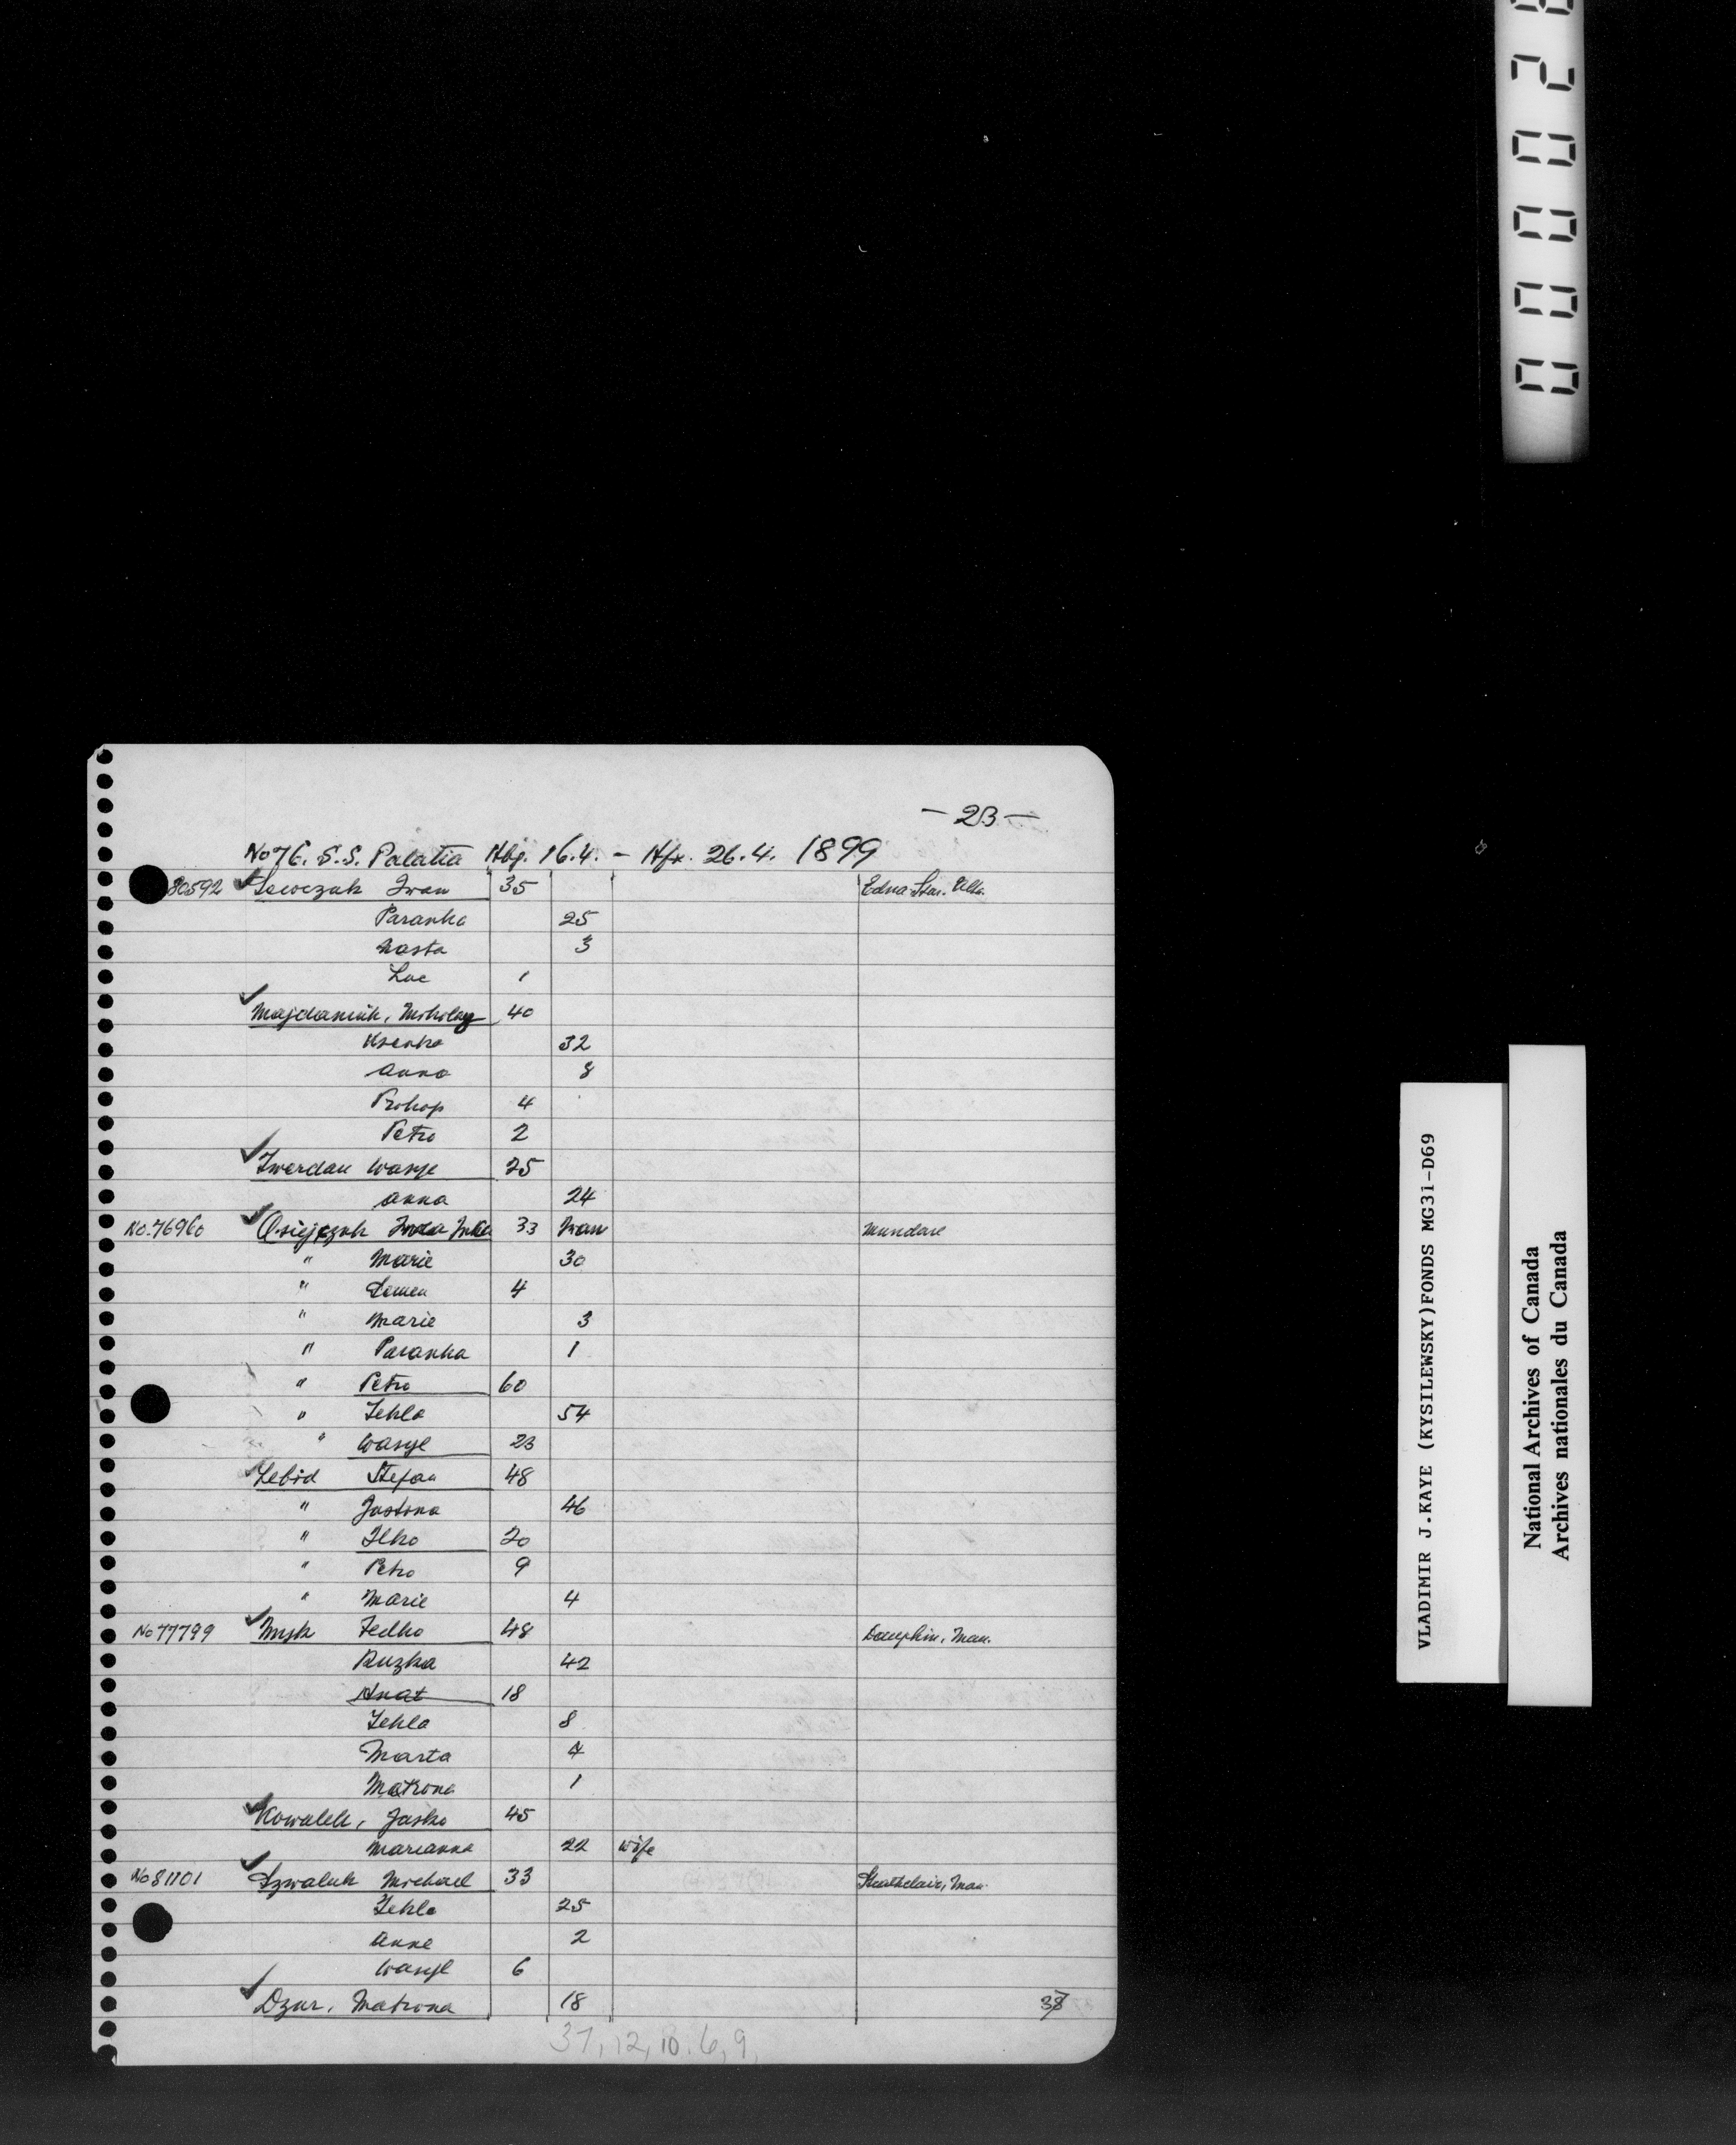 - 23 -
No 76. S.S. Palatia Hbg. 16.4. - Hfx. 26.4. 1899
80592 Sewczuk Iwan 35 Edna-Star. Alta.
Paranka 25
Nasta 3
Luc 1
Majdaniuk, Mikolay 40
Ksenka 32
Anna 8
Prokop 4
Petro 2
Twerdan Wasyl 25
Anna 24
No. 76960 Osiejczuk 33 Iwan Mundare
" Marie 30
" Semen 4
" Marie 3
" Paranka 1
" Petro 60
" Tekla 54
" Wasyl 23
Lebid Stefan 48
" Justina 46
" Ilko 20
" Petro 9
" Marie 4
No 77799 Fedko 48 Dauphin, Man.
Ruzka 42
Hnat 18
Tekla 8
Marta 7
Matrona 1
Kowalek, Jasko 45
Marianna 22 wife
No 81101 Szwaluk Michael 33 Strathclair, Man.
Tekla 25
Anne 2
Wasyl 6
Dzur, Matrona 18 38
37, 12, 10, 6, 9,
VLADIMIR J.KAYE (KYSILEWSKY)FONDS MG31-D69
National Archives of Canada
Archives nationales du Canada
00002